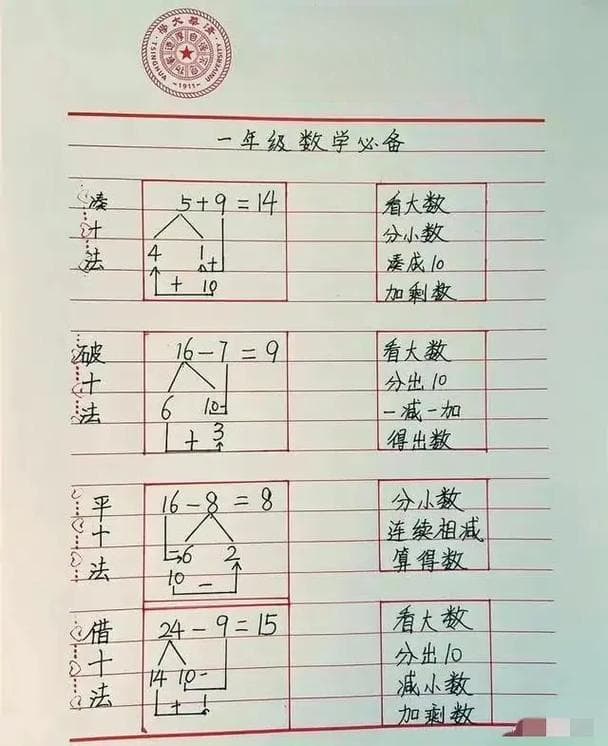 清華大學
TSINGHUA UNIVERSITY
-1911-
一年级数学必备
凑十法
5+9=14
4 1 +
+ 10
看大数
分小数
凑成10
加剩数
破十法
16-7=9
6 10-
+ 3
看大数
分出10
一减一加
得出数
平十法
16-8=8
=6 2
10 -
分小数
连续相减
算得数
借十法
24-9=15
14 10-
+ 1
看大数
分出10
减小数
加剩数